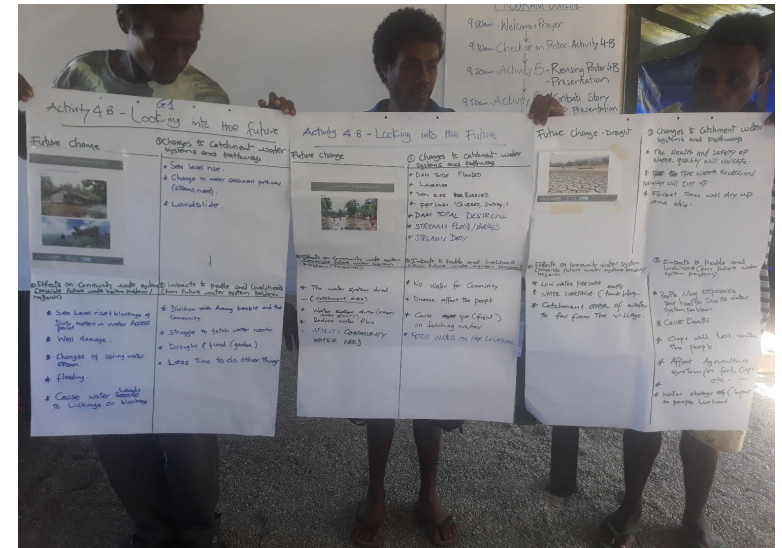 PROGRAM OUTLINE
9:00am - Welcome & Prayer
9:10am - Check in on Poster - Activity 4B
9:20am - Activity 5 - Revising Poster 4B
- Presentation
9:50am - Activity Kiribati Story
Presentation
G1
Activity 4B - Looking into the future
Future change
① Changes to Catchment water
systems and pathways
* Sea level rise.
* Change to water catchment pathway
(stream, river).
* Landslide.
② Effects on Community water system
* Sea Level rise & blocking of
Dirty material in water Access
point
* Well damage.
* Changes of spring water
stream.
* flooding.
* Cause water
to Lickage or blockage.
③ Impacts to people and Livelihoods
(from future water system problems)
* Division with Among people and the
Community.
* Struggle to fetch water nearer
* Drought & flood (garden).
* Less Time to do other things
Activity 4B - Looking into the Future
Future Change
① Changes to Catchment water
systems and pathways
* DAM SIDE FLOODED
* LANDSLIDE
* DAM SIDE BURRIED
* PIPE LINES
* DAM TOTAL DESTROIL
* STREAMS FLOOD / BURRIED
* STREAMS DRY.
* The water system dried
(catchment area)
* Reduce water flow
COMMUNITY
WATER NEED
Impacts to people and Livelihood
(from future water system problems)
* No water for Community.
* Disease affect the people
* Cause (fight)
on fetching water
* FETCH WATER ON FAR LOCATION
Future Change - Draught
① Changes to Catchment water
systems and pathways
* The Health and Safety of
Water quality will unsafe.
* The water source and
will DRY up.
* Forest Trees will dry up
and die.
② Effects on Community water system
* Low water pressure
* Water shortage
* Catchment area of water
to far from the village.
③ Impacts to people and
Livelihood (from future water
system problems)
* People Now experience
Poor health Due to water
system problem.
* Cause Death
* Crops will Less within
the people.
* Affect Agriculture
system for food, Crops
etc.
* Water shortage (impact
to people livelihood